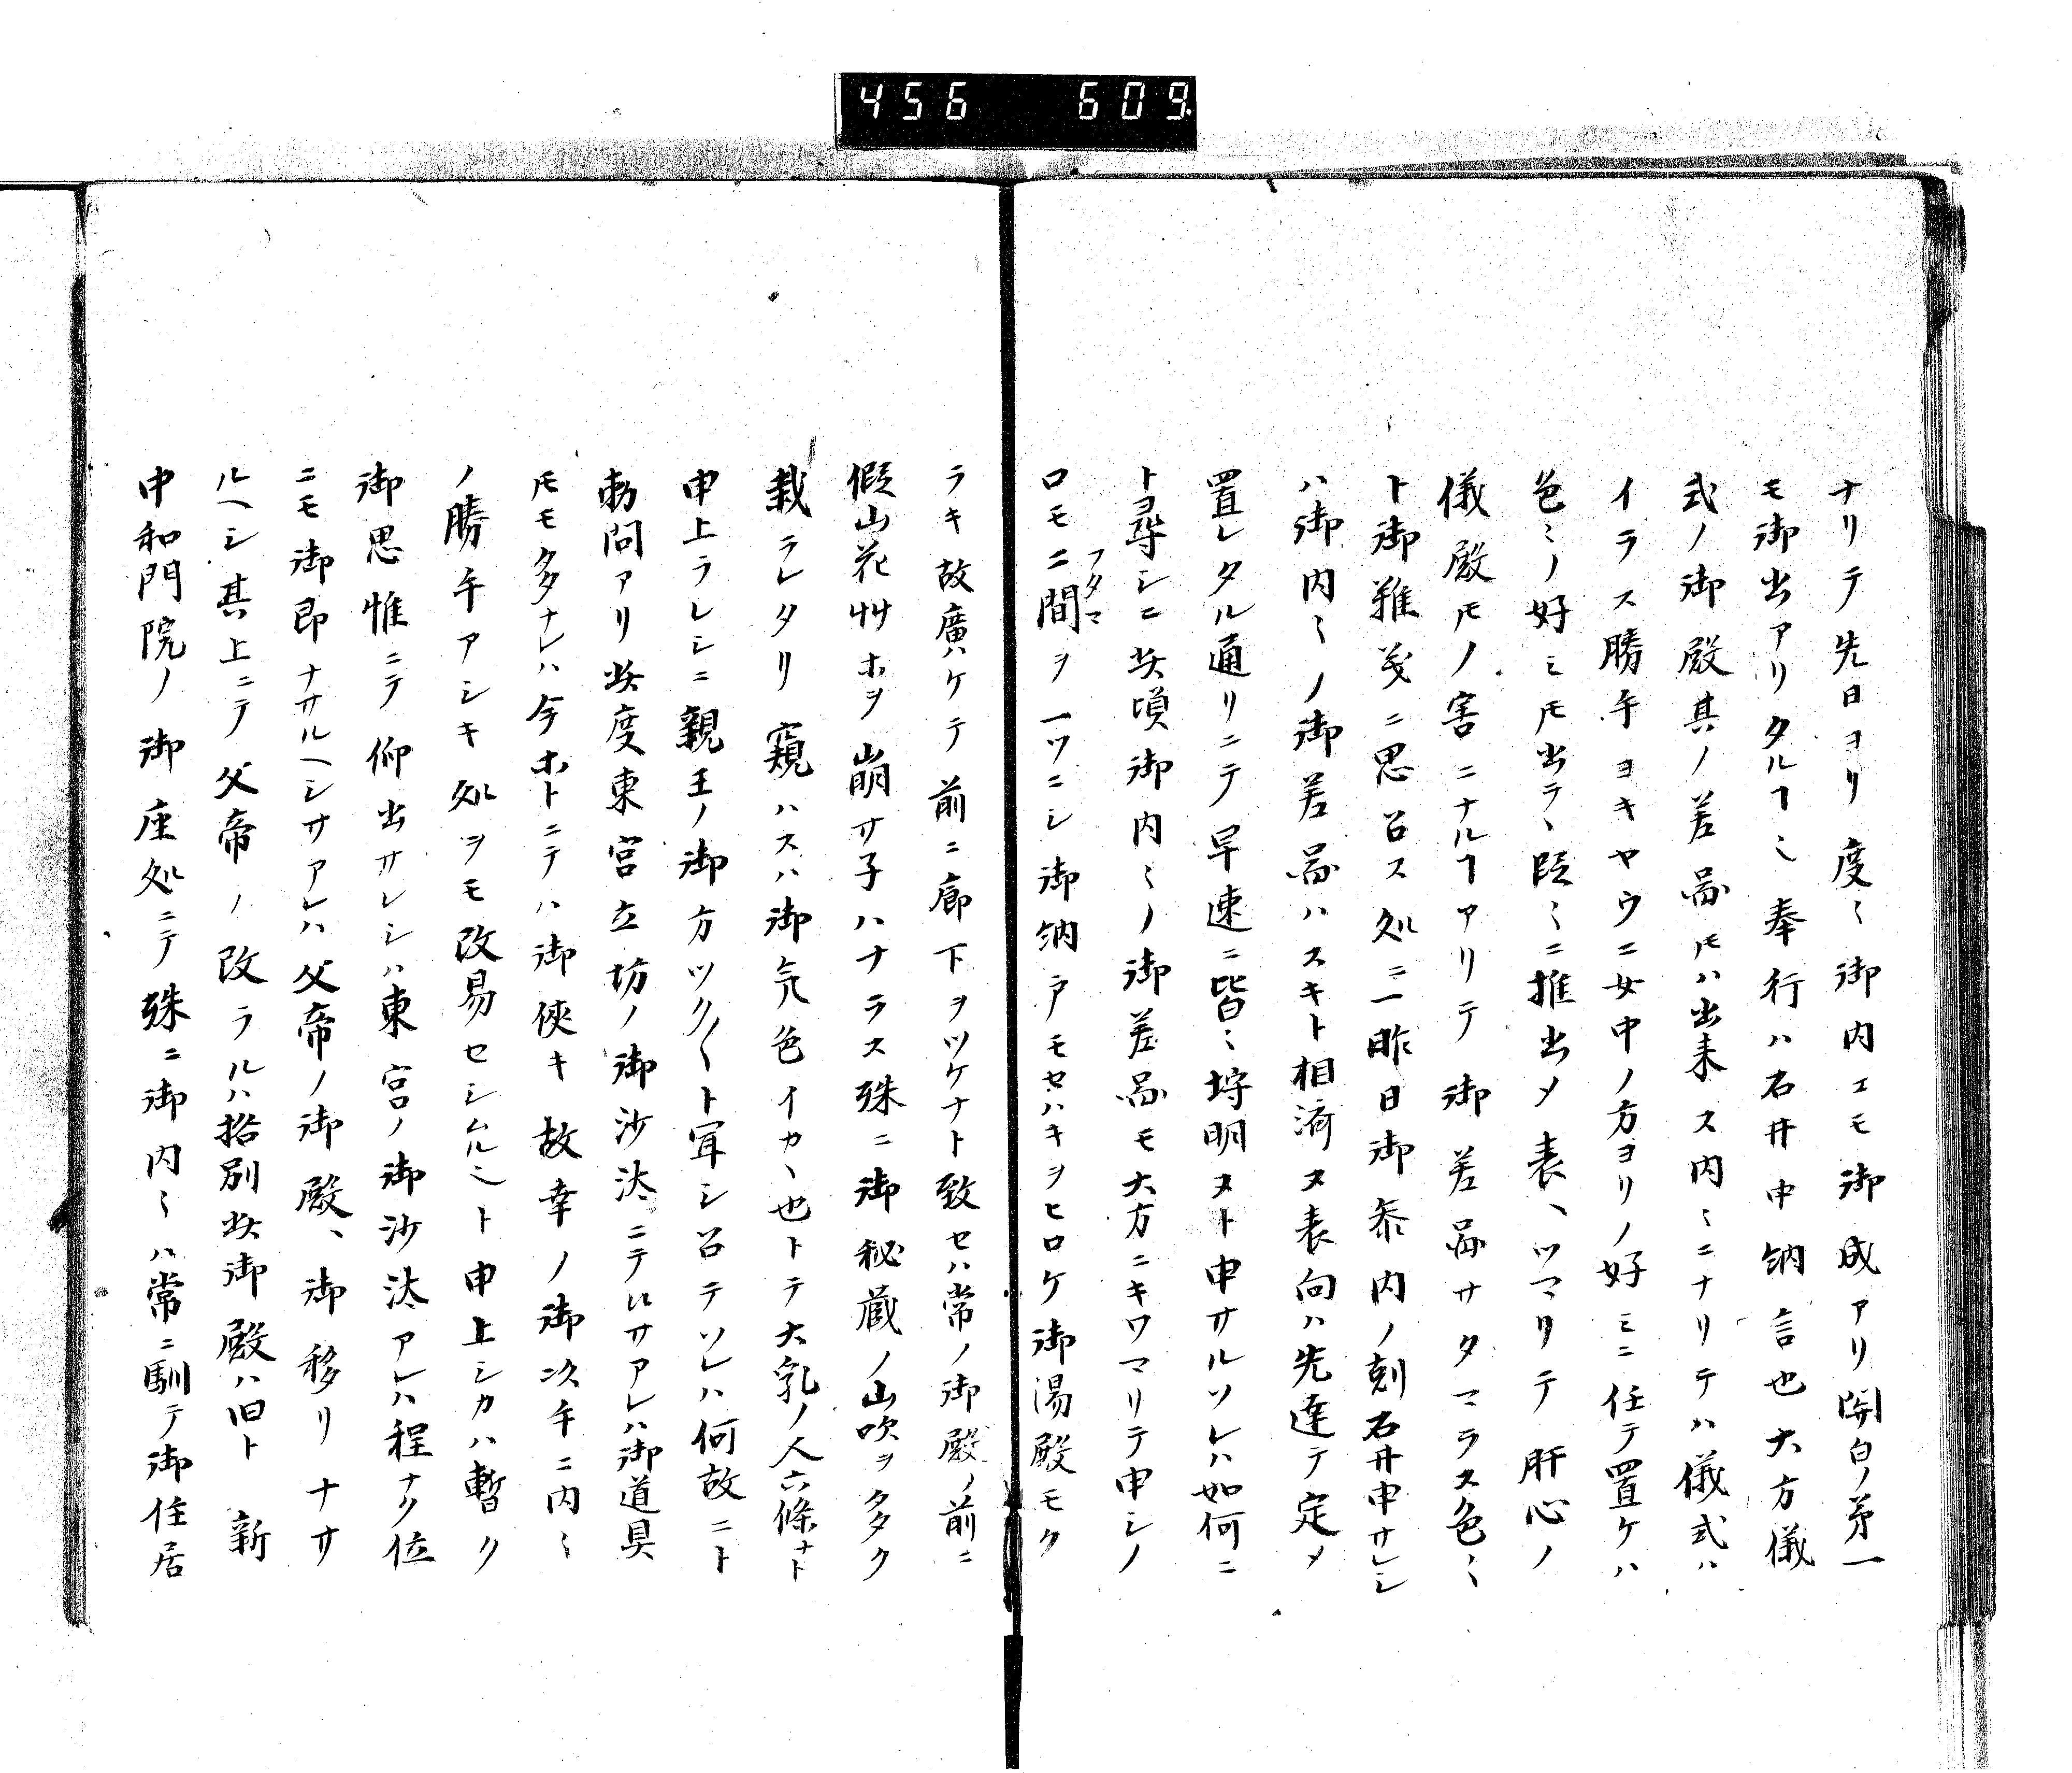 456 609
ナリテ先日ヨリ度〻御内エモ御成アリ関白ノ第一
モ御出アリタルヿ〻奉行ハ石井中納言也大方儀
式ノ御殿其ノ差図ドモハ出来ス内〻ニナリテハ儀式ハ
イラス勝手ヨキヤウニ女中ノ方ヨリノ好ミニ任テ置ケハ
色〻ノ好ミドモ出テ、段〻ニ推出メ表、ツマリテ肝心ノ
儀殿ドモノ害ニナルヿアリテ御差図サタマラス色〻
ト御難義ニ思召ス処ニ一昨日御参内ノ刻石井申サレシ
ハ御内〻ノ御差図ハスキト相済ヌ表向ハ先達テ定メ
置レタル通リニテ早速ニ皆〻埒明ヌト申サルソレハ如何ニ
ト尋シニ此頃御内〻ノ御差図モ大方ニキワマリテ申シノ
フタマ
ロモ二間ヲ一ツニシ御納戸モセハキヲヒロケ御湯殿モク
ラキ故廣ハケテ前ニ廊下ヲツケナト致セハ常ノ御殿ノ前ニ
假山花艸ホヲ崩サ子ハナラス殊ニ御秘蔵ノ山吹ヲ多タク
栽ラレタリ窺ハスハ御気色イカヽ也トテ大乳ノ人六條ナト
申上ラレシニ親王ノ御方ツク〱ト冝シ召テソレハ何故ニト
勅問アリ此度東宮立坊ノ御沙汰ニテ候サアレハ御道具
ドモモ多タナレハ今ホトニテハ御俠キ故幸ノ御次手ニ内〻
ノ勝手アシキ処ヲモ改易セシムル〻ト申上シカハ暫ク
御思惟ニテ仰出サレシハ東宮ノ御沙汰アレハ程ナク位
ニモ御即ナサルヘシサアレハ父帝ノ御殿、御移リナサ
ルヘシ其上ニテ父帝ノ改ラルハ挌別此御殿ハ旧ト新
中和門院ノ御座処ニテ殊ニ御内〻ハ常ニ馴テ御住居